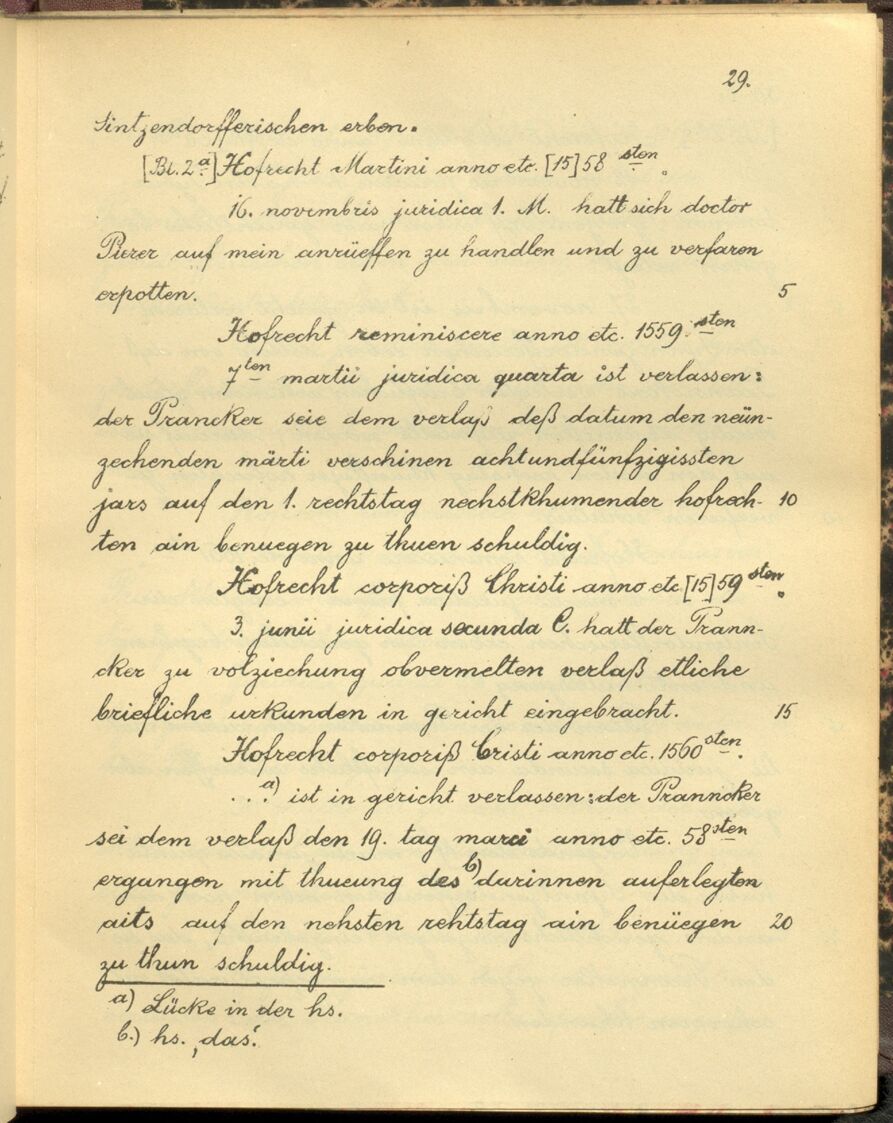 29.
Sintzendorfferischen erben.
[Bl. 2a] Hofrecht Martini anno etc. [15]58 sten.
16. novembris juridica 1. M. hatt sich doctor
Pierer auf mein anrüeffen zu handlen und zu verfaren
erpotten. 5
Hofrecht reminiscere anno etc. 1559. sten
7ten martii juridica quarta ist verlassen:
der Prancker seie dem verlaß deß datum den neün-
zechenden märti verschinen achtundfünfzigissten
jars auf den 1. rechtstag nechstkhumender hofrech- 10
ten ain benuegen zu thuen schuldig.
Hofrecht corporiß Christi anno etc [15]59 sten.
3. junii juridica secunda C. hatt der Prann-
cker zu volziechung obvermelten verlaß etliche
briefliche urkunden in gericht eingebracht. 15
Hofrecht corporiß Cristi anno etc. 1560 sten.
...a) ist in gericht verlassen: der Pranncker
sei dem verlaß den 19. tag marci anno etc. 58sten
ergangen mit thueung des b) darinnen auferlegten
aits auf den nehsten rehtstag ain benüegen 20
zu thun schuldig.
a) Lücke in der hs.
b.) hs. ‚das‘.